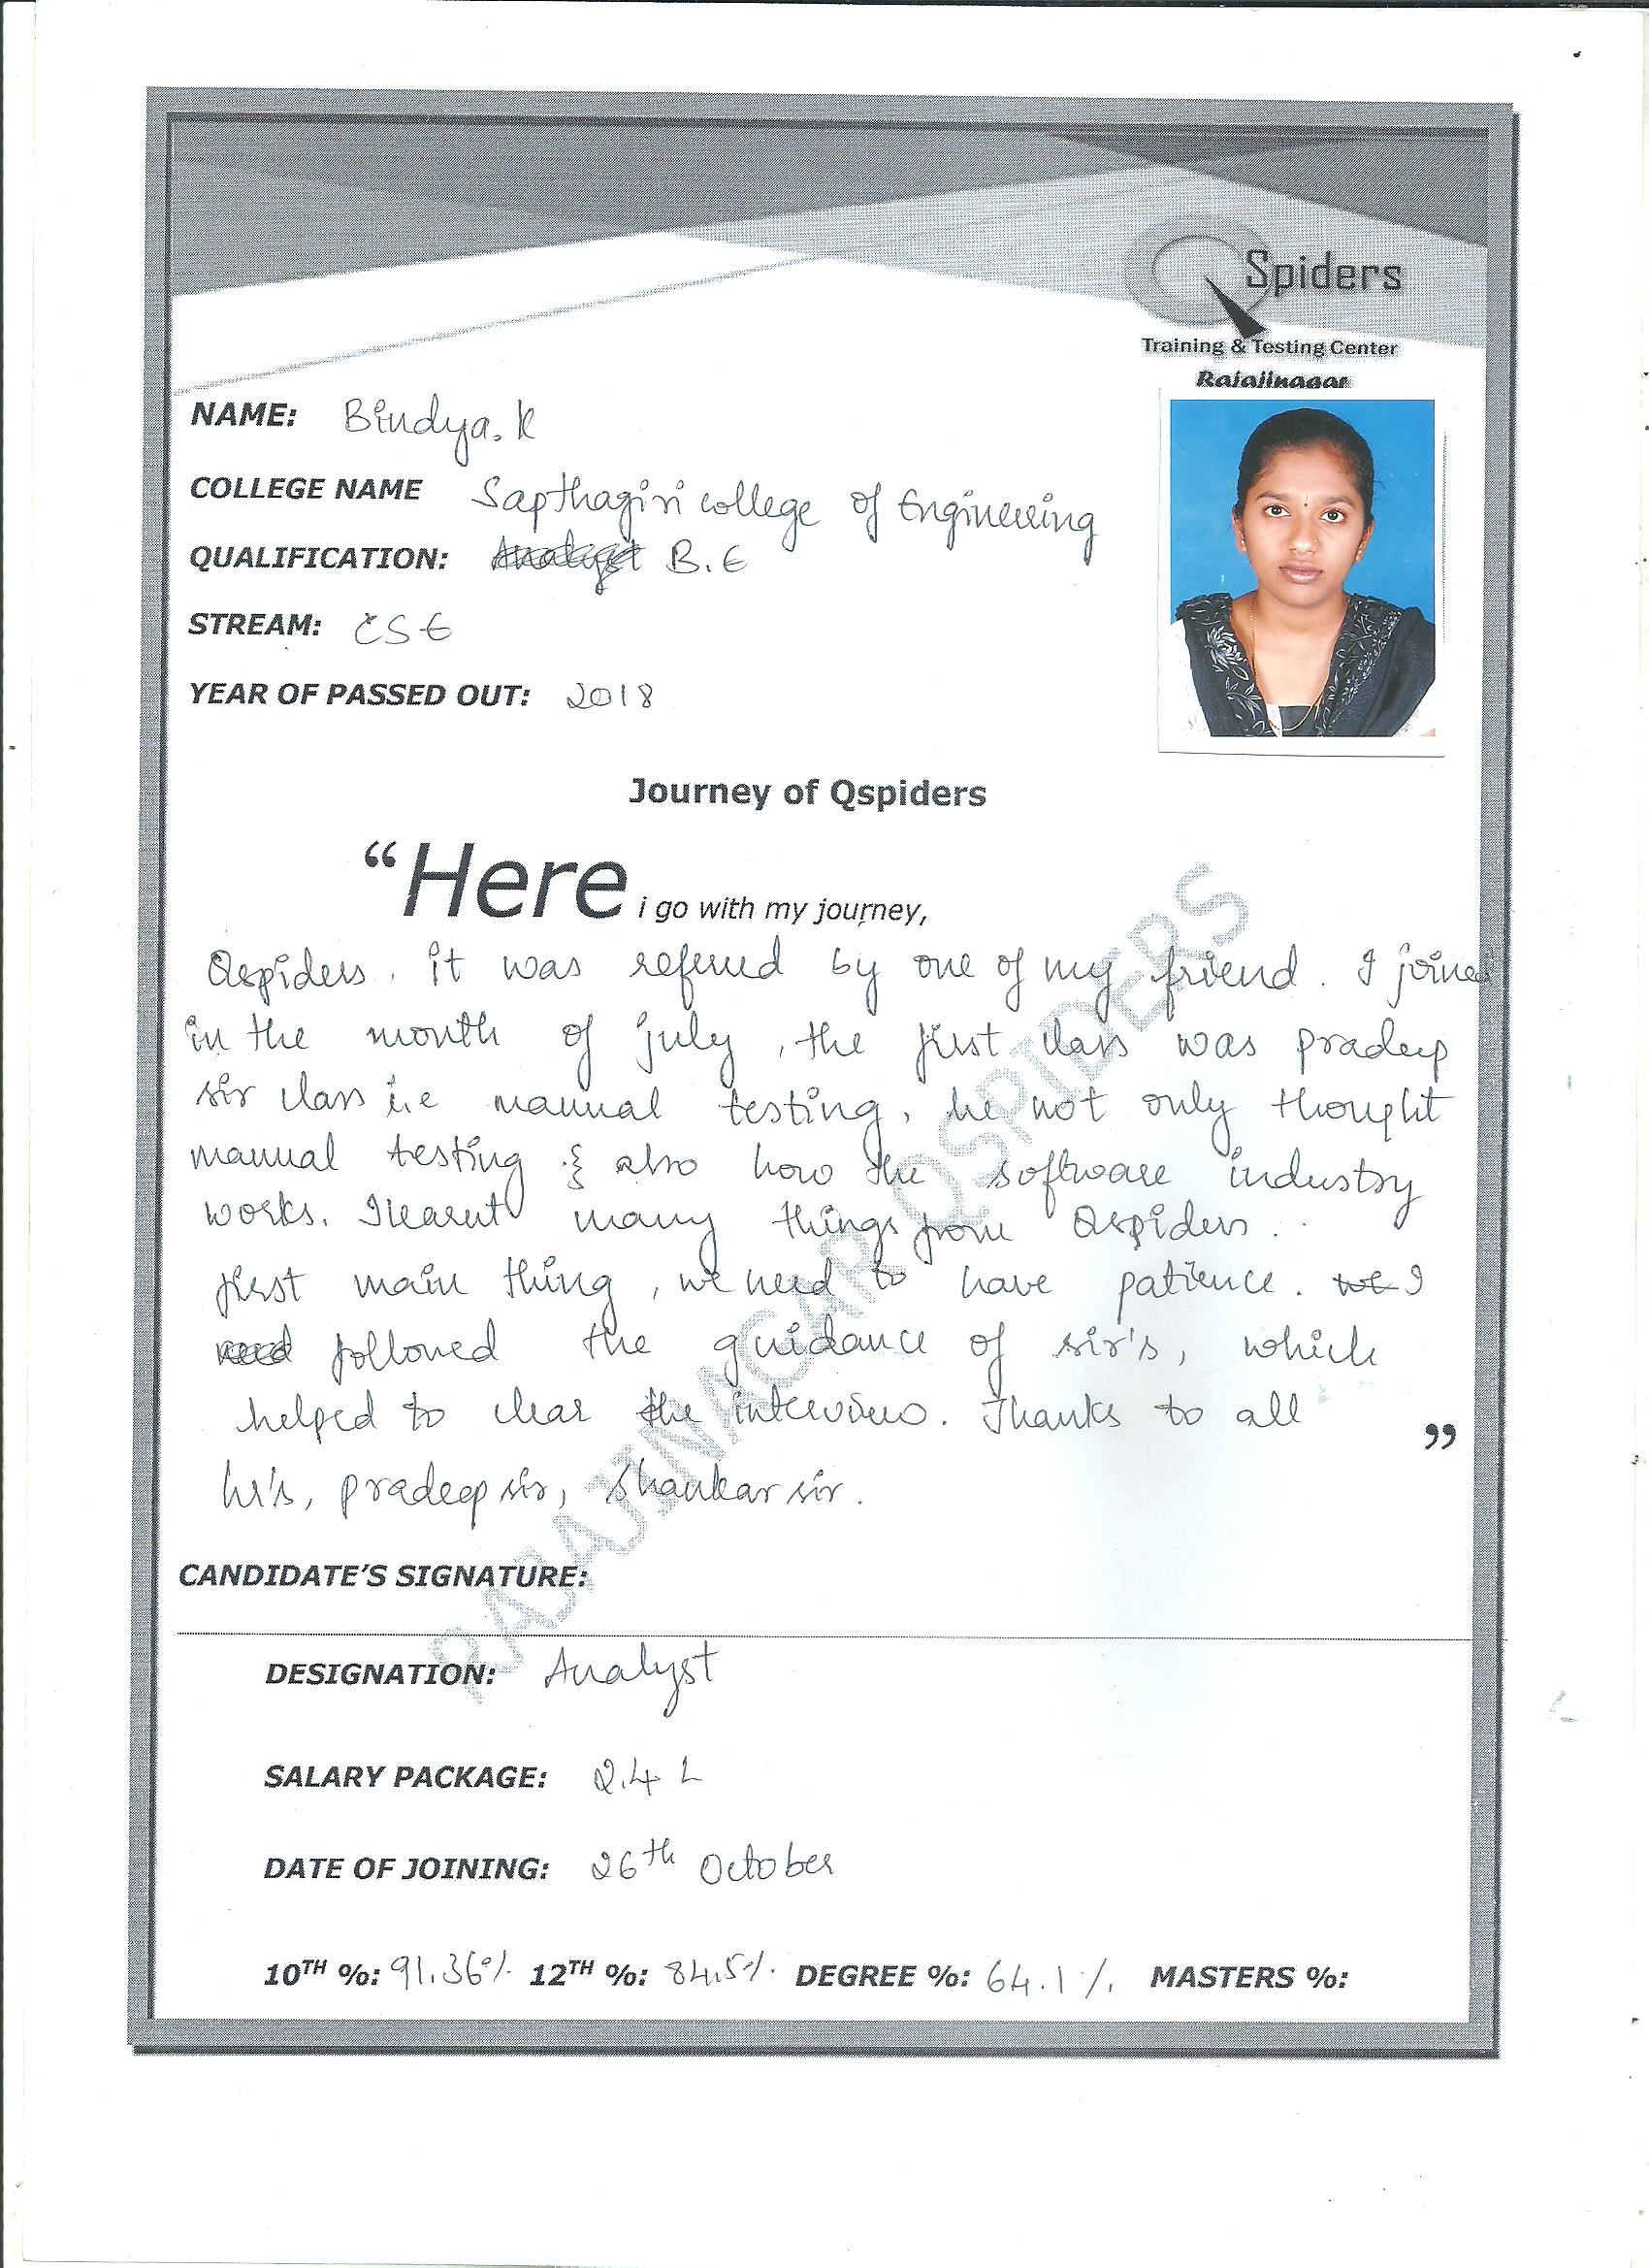 Spiders
Training & Testing Center
Rajajinagar
NAME: Bindya.K
COLLEGE NAME Sapthagiri college of Engineering
QUALIFICATION: Analyst B.E
STREAM: CSE
YEAR OF PASSED OUT: 2018
Journey of Qspiders
“Here i go with my journey,
Qspiders. it was referred by one of my friend. I joined
in the month of july, the first class was pradeep
sir class i.e manual testing, he not only thought
manual testing & also how the software industry
works. I learnt many things from Qspiders.
first main thing, we need to have patience. we I
need followed the guidance of sir's, which
helped to clear the interview. Thanks to all
”
hr's, pradeep sir, Shankar sir.
RAJAJINAGAR QSPIDERS
CANDIDATE’S SIGNATURE:
DESIGNATION: Analyst
SALARY PACKAGE: 2.4 L
DATE OF JOINING: 26th October
10TH %: 91.36% 12TH %: 84.5% DEGREE %: 64.1% MASTERS %: